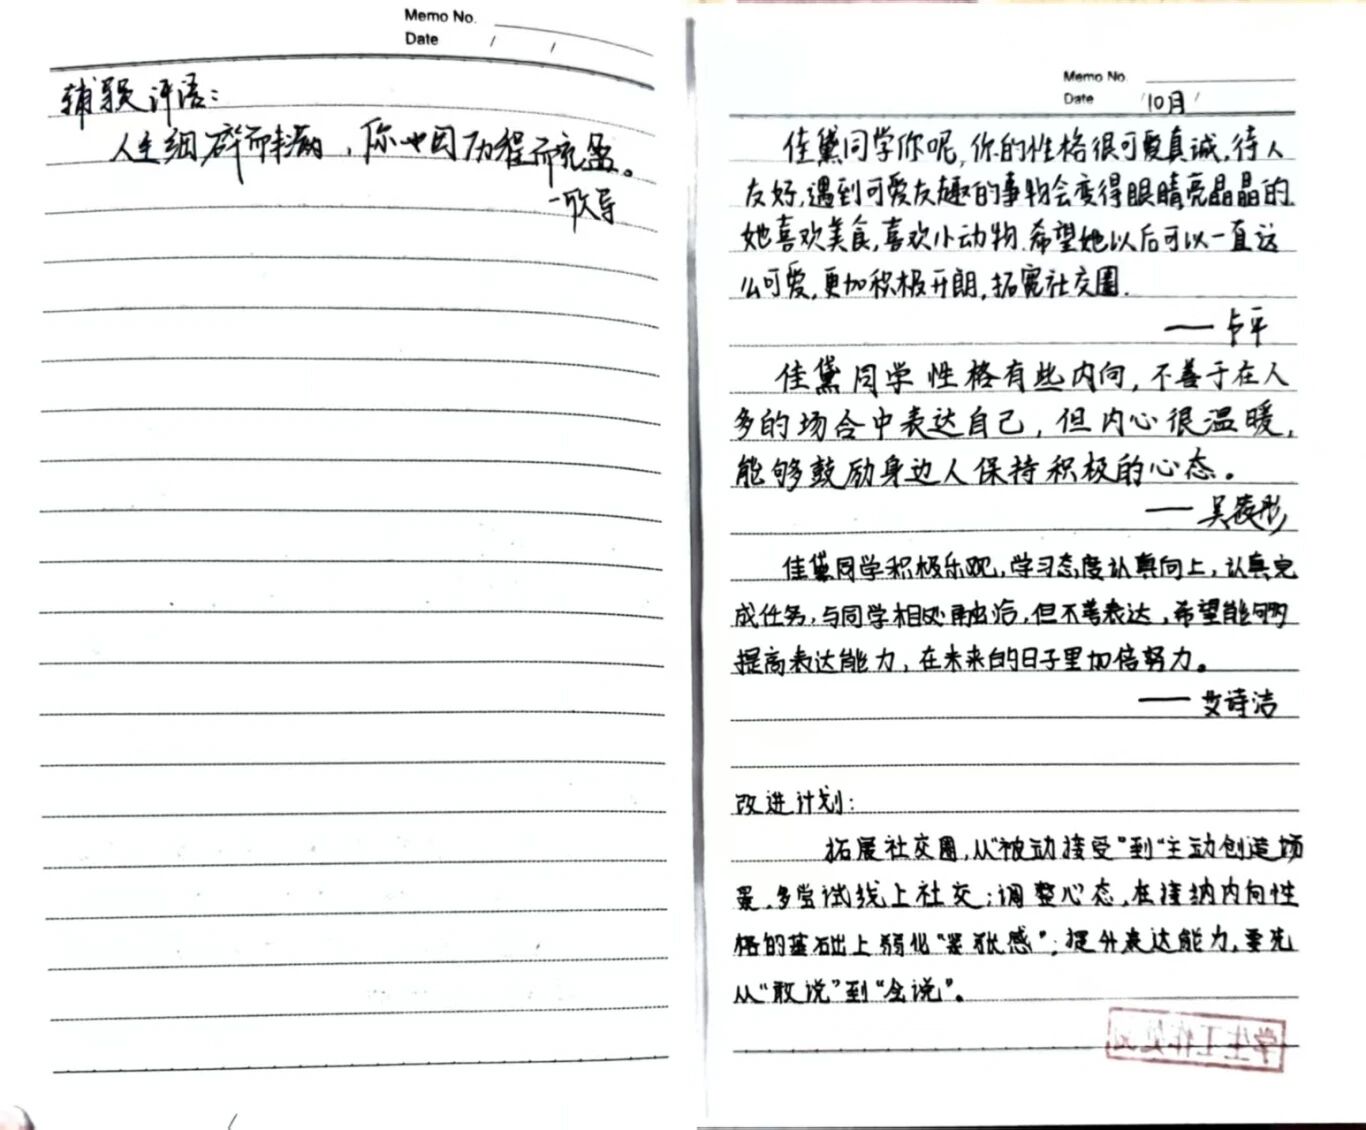 Memo No.
Date / /
辅导员评语:
人生细碎而丰满,你也因历程而充盈。
Memo No.
Date /10月/
佳黛同学你呢,你的性格很可爱真诚,待人
友好,遇到可爱友趣的事物会变得眼睛亮晶晶的.
她喜欢美食,喜欢小动物.希望她以后可以一直这
么可爱,更加积极开朗,拓宽社交圈.
——卢平
佳黛同学性格有些内向,不善于在人
多的场合中表达自己,但内心很温暖,
能够鼓励身边人保持积极的心态。
——吴筱彤
佳黛同学积极乐观,学习态度认真向上,认真完
成任务,与同学相处融洽,但不善表达,希望能够
提高表达能力,在未来的日子里加倍努力。
——艾诗洁
改进计划:
拓展社交圈,从“被动接受”到“主动创造场
景,多尝试线上社交;调整心态,在接纳内向性
格的基础上弱化“紧张感”;提升表达能力,要先
从“敢说”到“会说”。